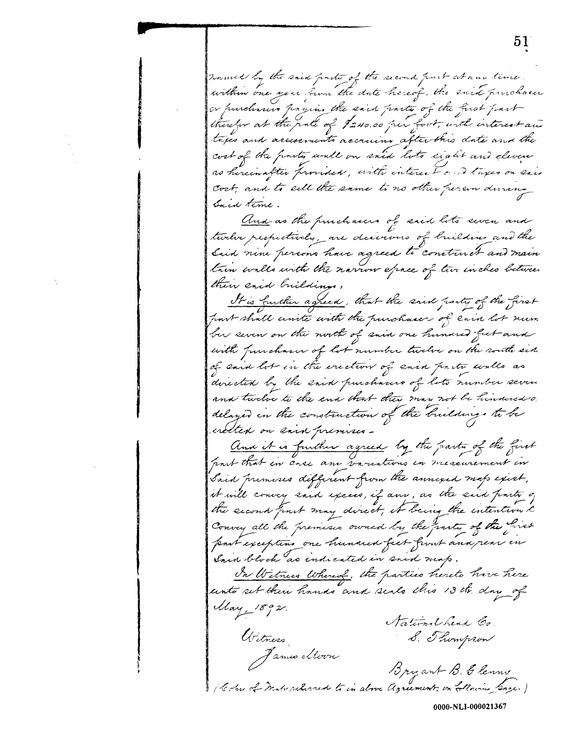 51
named by the said party of the second part at any time
within one year from the date hereof, the said purchaser
or purchasers paying the said party of the first part
therefor at the rate of $240.00 per foot, with interest and
taxes and assessments accruing after this date and the
cost of the party wall on said lots eight and eleven
as hereinafter provided, with interest and taxes on said
cost, and to sell the same to no other person during
said time.
And as the purchasers of said lots seven and
twelve respectively, are desirous of building and the
said nine persons have agreed to construct and main
tain walls with the narrow space of two inches between
their said buildings,
It is further agreed, that the said party of the first
part shall unite with the purchaser of said lot num
ber seven on the north of said one hundred feet and
with purchaser of lot number twelve on the south sid
of said lot in the erection of said party walls as
directed by the said purchasers of lots number seven
and twelve to the end that they may not be hindered o
delayed in the construction of the buildings to be
erected on said premises -
And it is further agreed by the party of the first
part that in case any variations in measurement in
said premises different from the annexed map exist,
it will convey said excess, if any, as the said party of
the second part may direct, it being the intention t
convey all the premises owned by the party of the first
part excepting one hundred feet front and rear in
said block as indicated in said map.
In Witness Whereof, the parties hereto have here
unto set their hands and seals this 13th day of
May 1892.
National Lead Co.
Witness S. Thompson
James Moore
Bryant B. Glenny
(Copy of Map referred to in above Agreement, on following page.)
0000-NLI-000021367